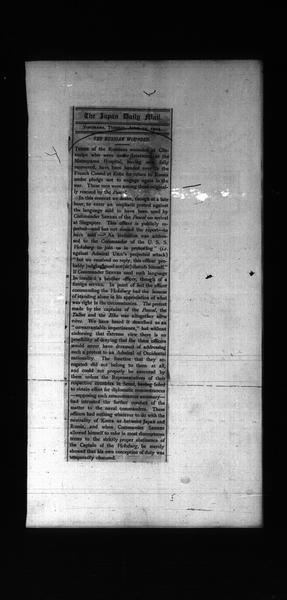 The Japan Daily Mail.
YOKOHAMA,
THE RUSSIAN WOUNDED.
of the Russians wounded at Che-
mulpo who were under treatment at the
Matsuyama Hospital, having now fully
recovered, have been handed over to the
French Consul at Kobe for return to Russia
under pledge not to engage again in the
war. These men were among those original-
ly rescued by the Pascal.
In this context we desire, though at a late
hour, to enter an emphatic protest against
the language said to have been used by
Commander SENES of the Pascal on arrival
at Singapore. This officer is publicly re-
ported—and has not denied the report—to
have said :—"An invitation was address-
ed to the Commander of the U. S. S.
Vicksburg to join us in protesting" (i.e.
against Admiral URIU'S projected attack)
"but we received no reply, this officer pro-
bably judging
If Commander SENES used such language
he insulted a brother officer, though of a
foreign service. In point of fact the officer
commanding the Vicksburg had the honour
of standing alone in his appreciation of what
was right in the circumstances. The protest
made by the captains of the Pascal, the
Talbot and the Elba was altogether ultra
vires. We have heard it described as an
"unwarrantable impertinence," but without
endorsing that extreme view there is no
possibility of denying that the three officers
would never have dreamed of addressing
such a protest to an Admiral of Occidental
nationality. The function that they ar-
rogated did not belong to them at all,
and could not properly be exercised by
them unless the Representatives of their
respective countries in Seoul, having failed
to obtain effect for diplomatic remonstrances
—supposing such remonstrances necessary—
had intrusted the further conduct of the
matter to the naval commanders. These
officers had nothing whatever to do with the
neutrality of Korea as between Japan and
Russia, and when Commander SENES
allowed himself to refer in most discourteous
terms to the strictly proper abstinence of
the Captain of the Vicksburg, he merely
showed that his own conception of duty was
temporarily obscured.